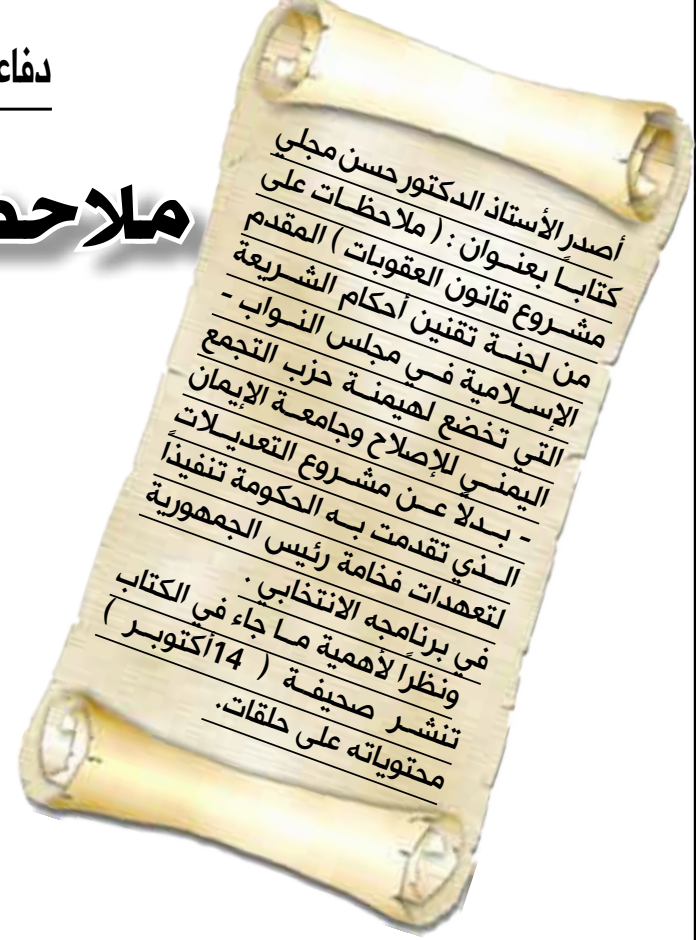 دفاع
ملاحظ
أصدر الأستاذ الدكتور حسن مجلي
كتاباً بعنــوان : ( ملاحظــات على
مشــروع قانون العقوبات ) المقدم
من لجنــة تقنين أحكام الشــريعة
الإســلامية فــي مجلس النــواب -
التي تخضع لهيمنــة حزب التجمع
اليمنــي للإصلاح وجامعــة الإيمان
- بــدلاً عــن مشــروع التعديــلات
الــذي تقدمت بــه الحكومة تنفيذاً
لتعهدات فخامة رئيس الجمهورية
في برنامجه الانتخابي .
ونظراً لأهمية مــا جاء في الكتاب
تنشــر صحيفــة ( 14أكتوبــر )
محتوياته على حلقات.